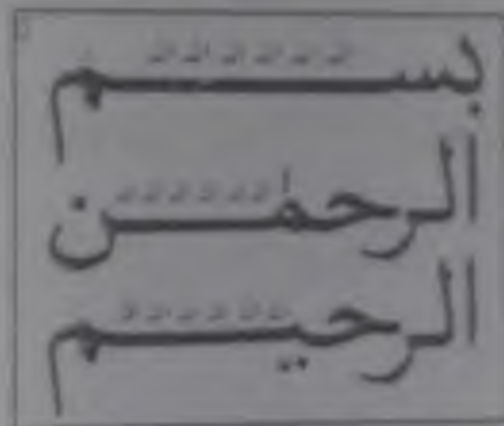 بسم
الرحمٰن
الرحيم